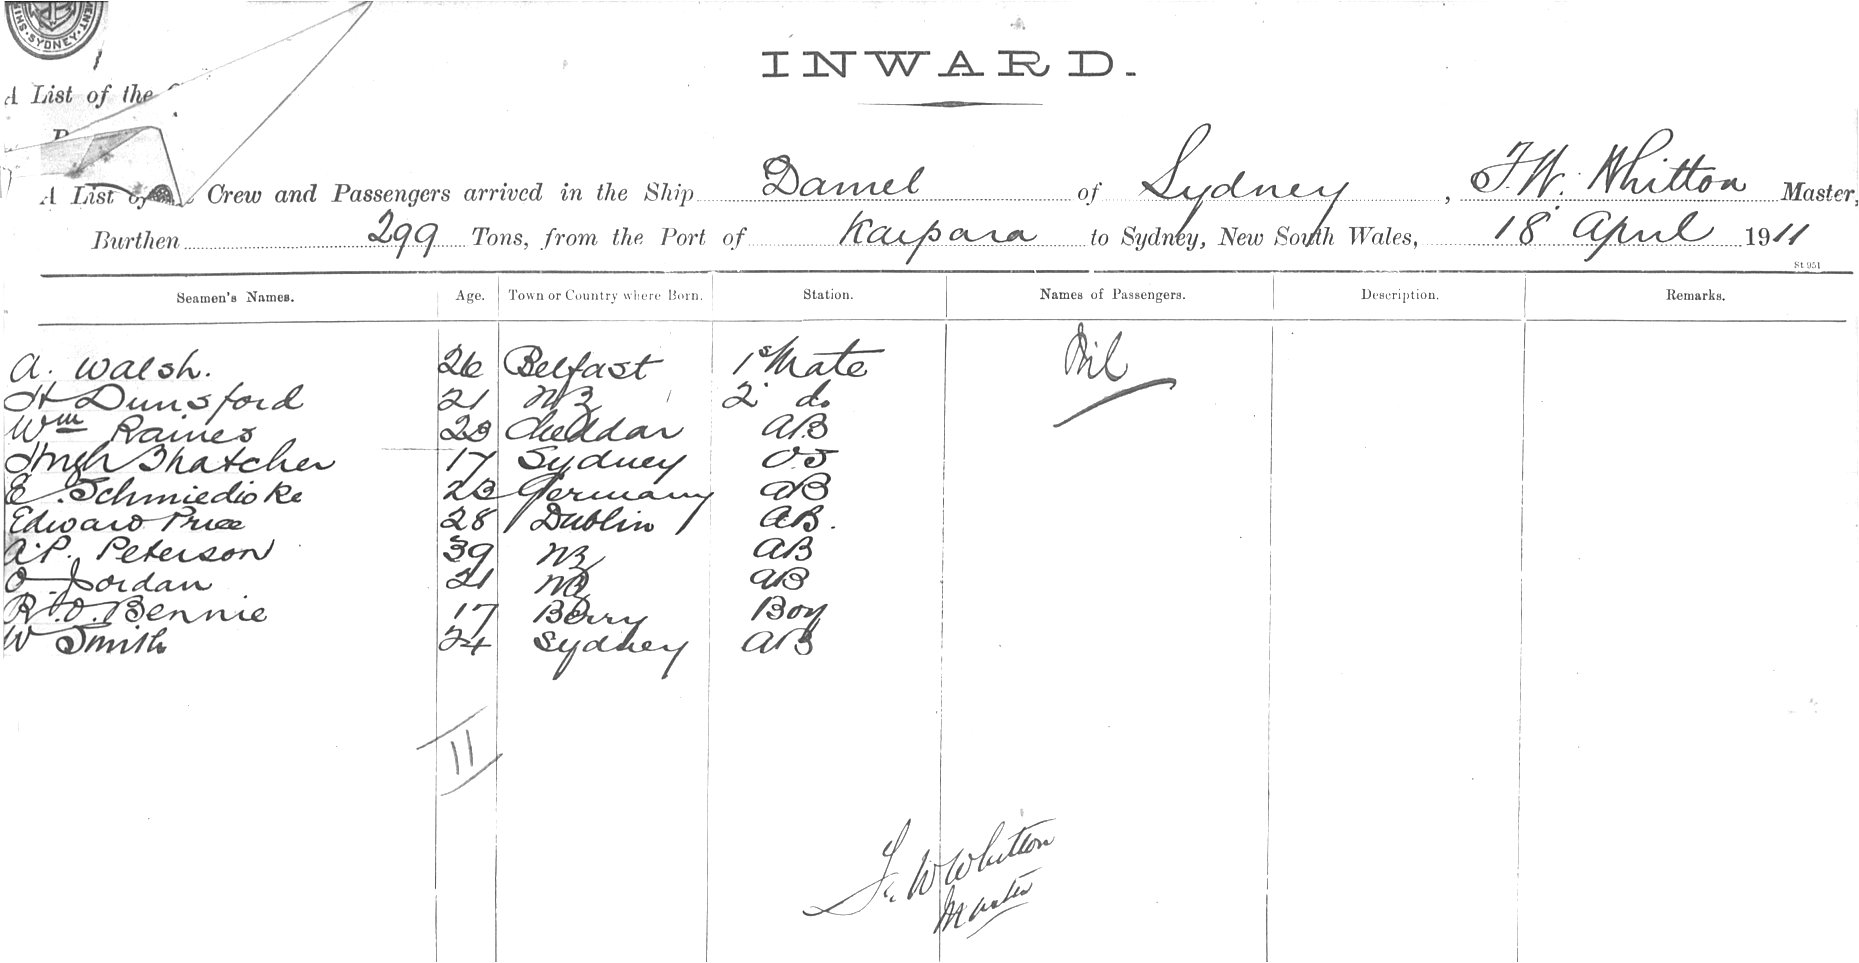 MENT · SYDNEY · SHI
INWARD.
A List of the
A List of Crew and Passengers arrived in the Ship Daniel of Sydney, F.W. Whitton Master,
Burthen 299 Tons, from the Port of Kaipara to Sydney, New South Wales, 18 April 1911
St 951
Seamen's Names. Age. Town or Country where Born. Station. Names of Passengers. Description. Remarks.
A. Walsh. 26 Belfast 1st Mate Nil
H Dunsford 21 NZ 2 do
Wm Raines 23 Cheddar AB
Hugh Thatcher 17 Sydney OS
E. Schmiedicke 23 Germany AB
Edward Price 28 Dublin AB.
A.P. Peterson 39 NZ AB
O Jordan 21 NZ AB
R.O. Bennie 17 Berry Boy
W Smith 24 Sydney AB
11
F. W Whitton
Master